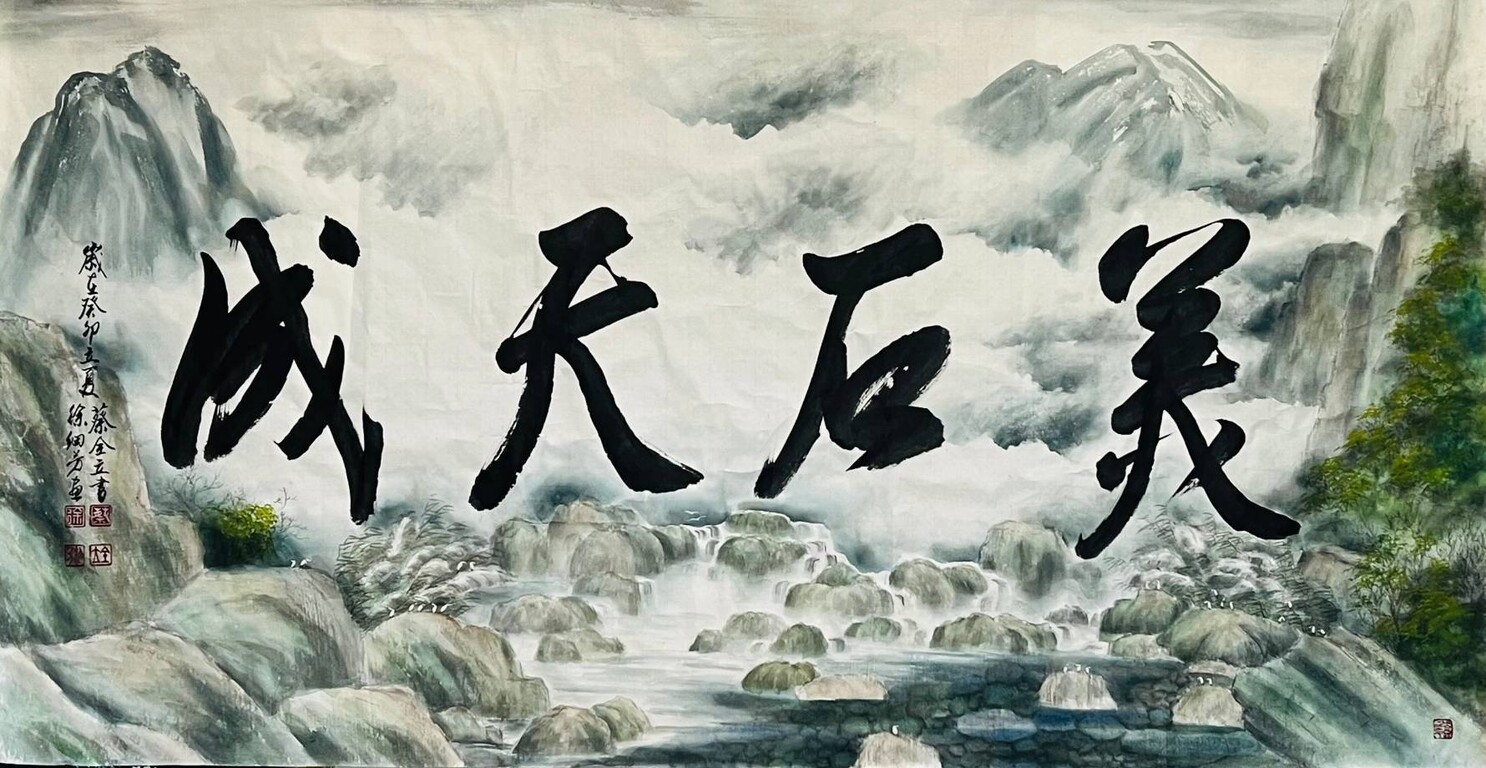 美石天成
歲在癸卯立夏
蔡全立書
徐細芳畫